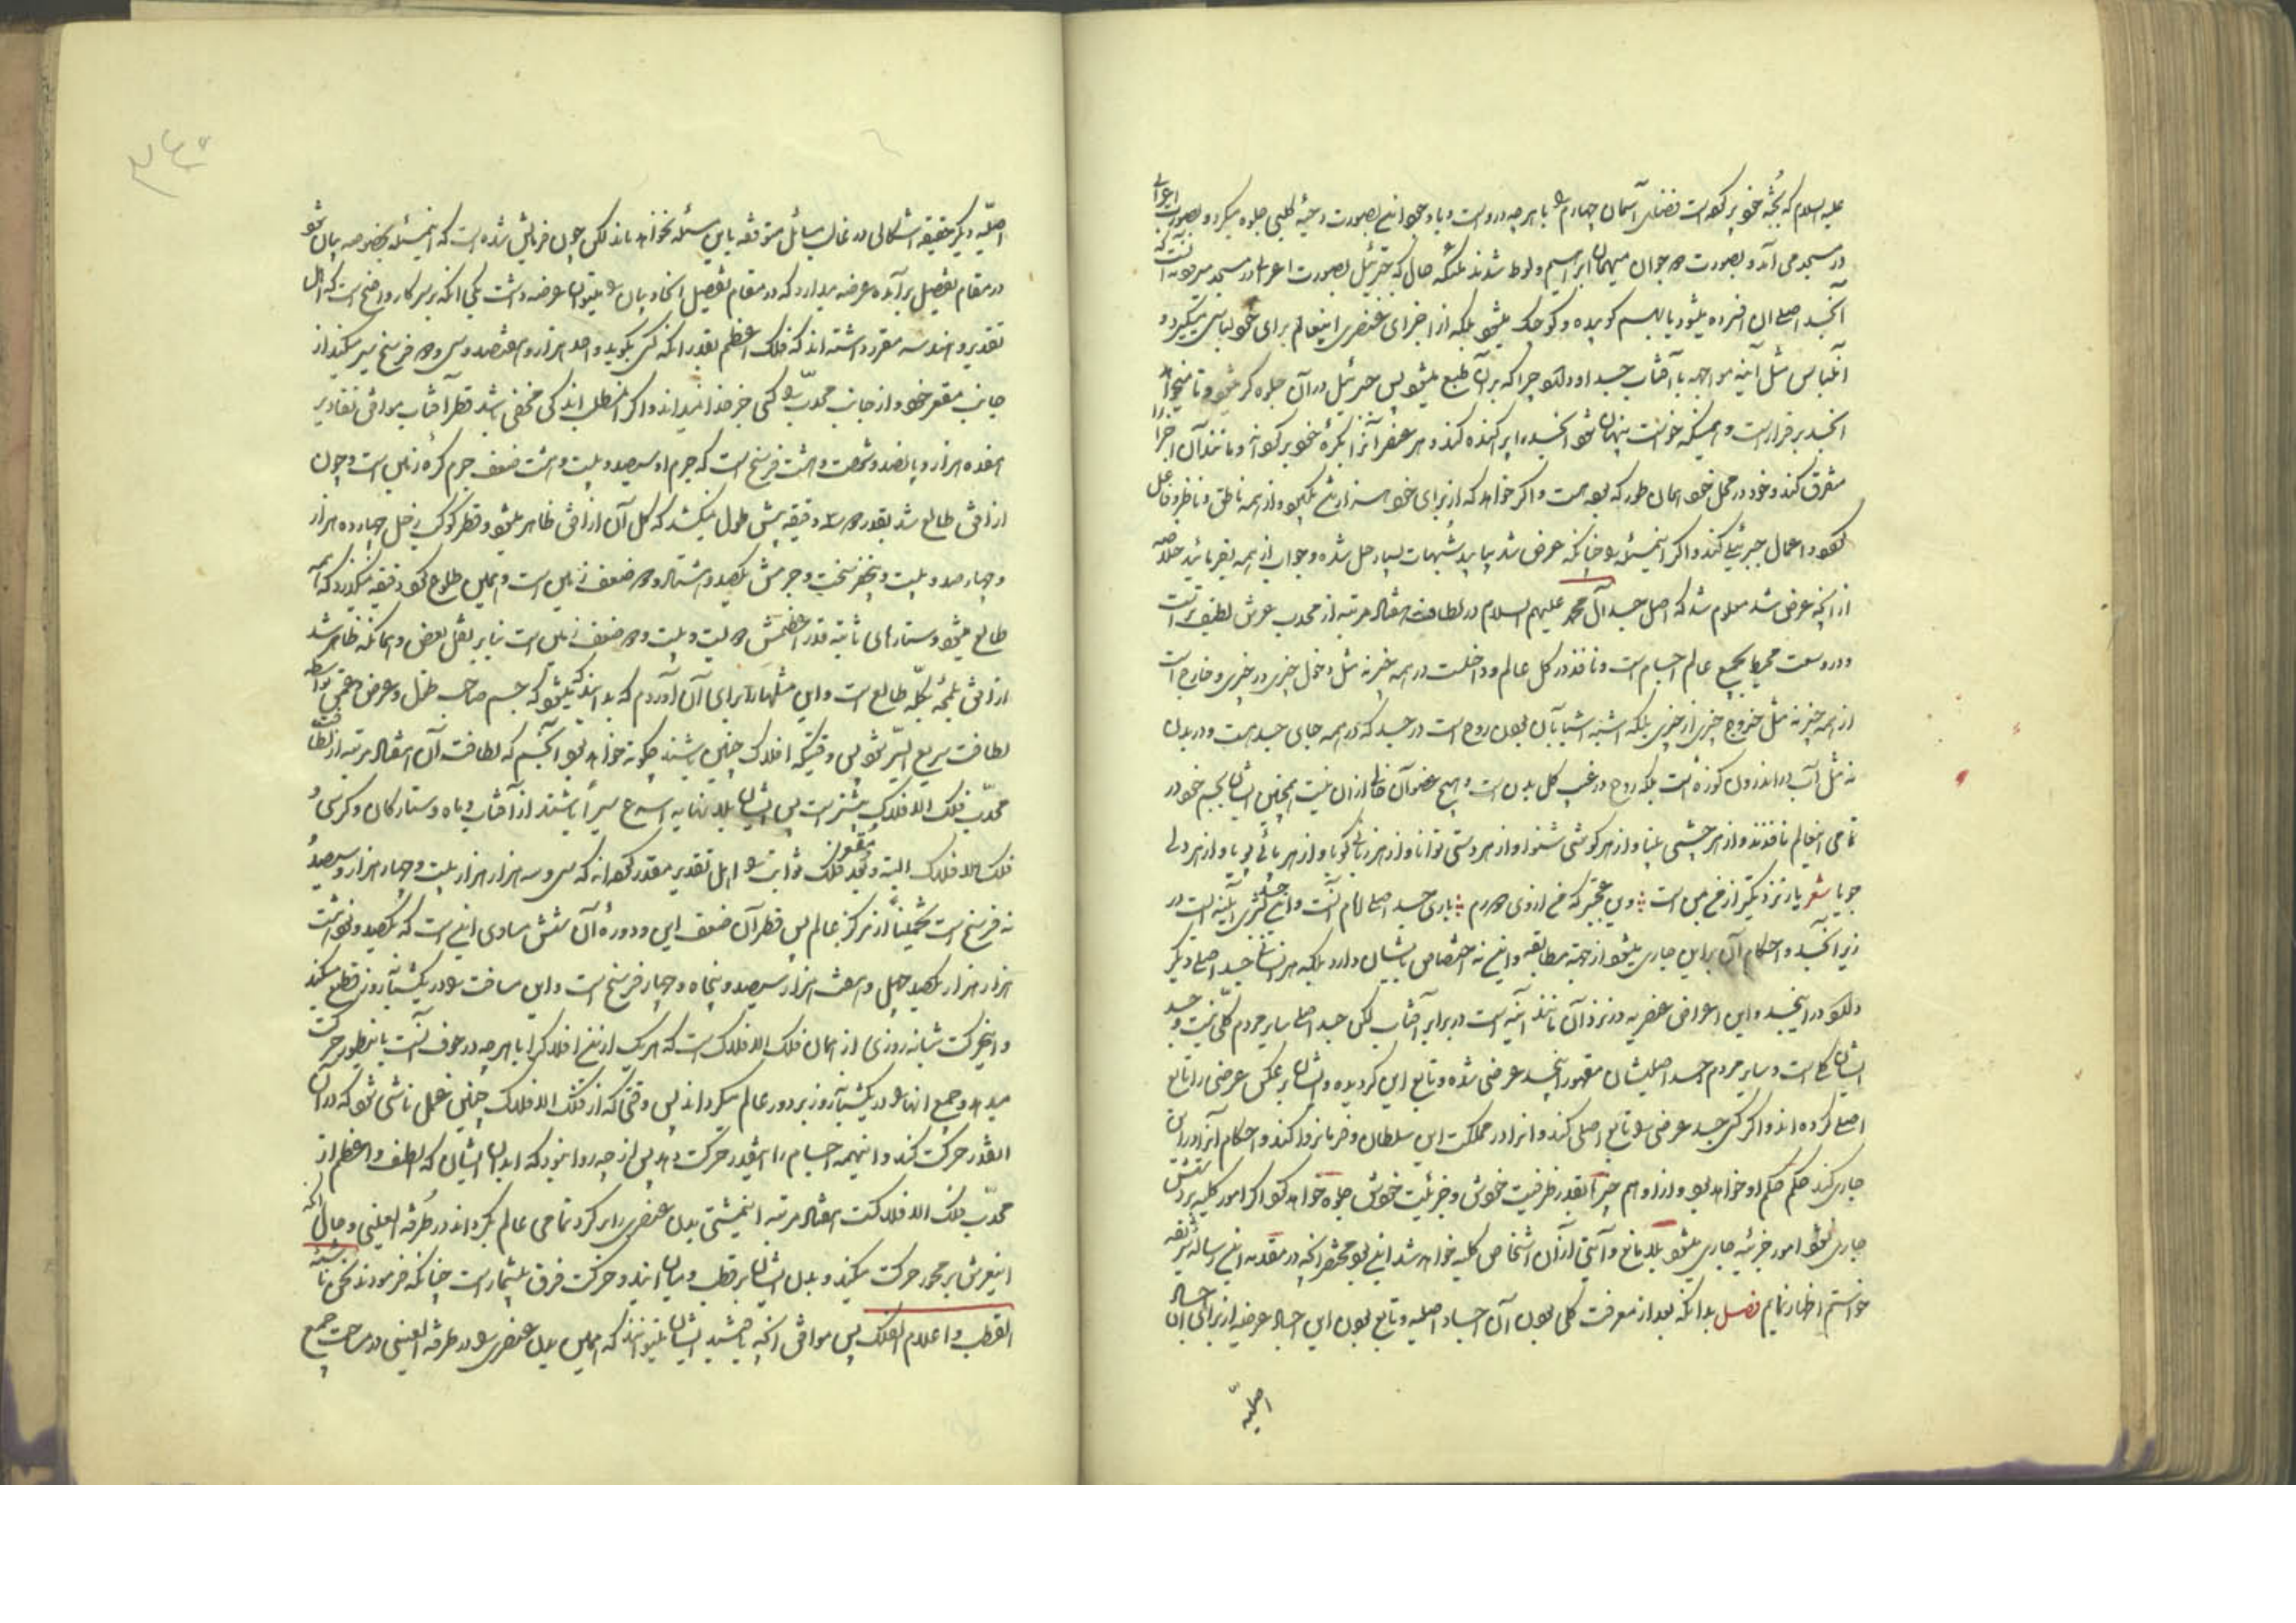 علیه السلام که بجثه خود پر کرده است فضای آسمان چهارم را با هرچه در اوست و با وجود این بصورت دحیه کلبی جلوه میکرد و بصورت اعرابی
در مسجد می آمد و بصورت دو جوان میهمان ابراهیم و لوط شدند بلکه حال که جبرئیل بصورت اعرابی در مسجد میرود نه آنست که
آنجسد اصلی ان افسرده میشود یا بهم کوبیده و کوچک میشود بلکه از اجزای عنصری اینعالم برای خود لباسی میگیرد و
آنلباس مثل آینه مواجهه با آفتاب جسد او دارد چرا که بر آن طبع میشود پس جبرئیل در آن جلوه گر میشود و تا میخواهد
انجسد برقرار است و همینکه خواست پنهان شود انجسد را پراکنده کند و هر عنصر آنرا بکره خود برگرداند و مانند آن اجزا را
متفرق کند و خود در محل خود همان طور که بود هست و اگر خواهد که از برای خود هزار شبح بگیرد و از همه ناطق و ناظر و فاعل
شود و اعمال جبرئیلی کند و اگر اینمسئله را چنانکه عرض شد بیابید شبهات بسیار حل شده و جواب از همه بفرمائید خلاصه
از آنچه عرض شد معلوم شد که اصل جسد آل محمد علیهم السلام در لطافت هفتاد مرتبه از محدب عرش لطیف تر است
و در وسعت محیط بجمیع عالم اجسام است و نافذ در کل عالم و داخلست در همه چیز نه مثل دخول چیزی در چیزی و خارج است
از همه چیز نه مثل خروج چیزی از چیزی بلکه اشبه اشیا بآن بودن روح است در جسد که در همه جای جسد هست و در بدن
نه مثل آب در اندرون کوزه است بلکه روح در غیب کل بدن است و هیچ عضو آن خالی از ان نیست همچنین ایشان بجسم خود در
تمامی اینعالم نافذند و از هر چشمی بینا و از هر گوشی شنوا و از هر دستی توانا و از هر زبانی گویا و از هر پائی پویا و از هر دلی
جویا شعر یار نزدیکتر از من بمن است وین عجبتر که من از وی دورم باری جسد اصلی امام آنست و این جسد عنصری آینه است در
زیر آنجسد و احکام آن بر این جاری میشود از جهة مطابقه و این نه اختصاص بایشان دارد بلکه هر انسانی جسد اصلی دیگر
دارد در اینجسد و این اعراض عنصریه در نزد آن مانند آینه است در برابر آفتاب لکن جسد اصلی سایر مردم کلی نیست و جسد
ایشان کلی است و سایر مردم جسد اصلیشان مقهور اینجسد عرضی شده و تابع این گردیده و ایشان بر عکس عرضی را تابع
اصلی کرده اند و اگر کسی جسد عرضی را تابع اصلی کند و انرا در مملکت این سلطان و فرمانروا کند و احکام آنرا در این
جاری کند حکم حکم او خواهد بود و از او هم چیزها بقدر ظرفیت خودش و جزئیت خودش جلوه خواهد کرد اگر امور کلیه بر دستش
جاری نشود امور جزئیه جاری میشود بلا مانع و آیتی از آن اشخاص کلیه خواهد شد این بود مختصر آنچه در مقدمه این رساله شریفه
خواستم اظهار نمایم فصل بدانکه بعد از معرفت کلی بودن آن اجساد اصلیه و تابع بودن این اجساد عرضیه از برای آن اجساد
اصلیه
اصلیه دیگر حقیقة اشکالی در غالب مسائل متوقفه باین مسئله نخواهد ماند لکن چون فرمایش شده است که اینمسئله بخصوصه بیان شود
در مقام تفصیل بر آمده عرضه میدارد که در مقام تفصیل انحاء بیان را میتوان عرضه داشت یکی انکه بر سرکار واضح است که اهل
تقدیر و هندسه مقرر داشته اند که فلک اعظم بقدر انکه کسی بگوید واحد هزار و هفتصد و سی و دو فرسخ سیر میکند از
جانب مقعر خود و از جانب محدب را کسی جز خدا نمیداند و اگر اینمطلب اندکی مخفی باشد قطر آفتاب موافق تقادیر
هفده هزار و پانصد و شصت و هشت فرسخ است که جرم او سیصد و بیست و هشت ضعف جرم کره زمین است و چون
از افق طالع شد بقدر دو سه دقیقه بیش طول نمیکشد که کل آن از افق ظاهر میشود و قطر کوکب زحل چهارده هزار
و چهار صد و بیست و پنج فرسخ است و جرمش یکصد و هشتاد و دو ضعف زمین است و همین طلوع کرد دقیقه نمیگذرد که همه
طالع میشود و ستارهای ثابته قدر اعظمش دویست و بیست و دو ضعف زمین است بنا بر نقل بعض و همانکه ظاهر شد
از افق بلمحه بکله طالع است و این مثلها را برای آن آوردم که بدانند که میشود که جسم صاحب طول و عرض و عمق بواسطه
لطافت سریع السیر شود پس وقتیکه افلاک چنین باشند چگونه خواهد بود آنجسم که لطافت آن هفتاد مرتبه از لطافت
محدب فلک الافلاک بیشتر است پس ایشان بلا نهایه اسرع سیراً باشند از آفتاب و ماه و ستارگان و کرسی و
فلک الافلاک البته و بعد مقعر فلک ثوابت را اهل تقدیر مقدر کرده اند که سی و سه هزار هزار بیست و چهار هزار و سیصد و
نه فرسخ است تخمیناً از مرکز عالم پس قطر آن ضعف این و دوره آن شش مساوی این است که یکصد و نود و هشت
هزار هزار یکصد و چهل و هفت هزار و سیصد و پنجاه و چهار فرسخ است و این مسافت را در یکشبانه روز قطع میکند
و این حرکت شبانه روزی از همان فلک الافلاک است که هر یک از این افلاک را با هرچه در جوف آنست باینطور حرکت
میدهد و جمیع انها را در یکشبانه روز بر دور عالم میگرداند پس وقتی که از فلک الافلاک چنین عمل ناشی شود که در آن
انقدر حرکت کند و اینهمه اجسام را اینقدر حرکت دهد پس از چه روا نبود که ابدان ایشان که الطف و اعظم از
محدب فلک الافلاکست هفتاد مرتبه اینمشتی بدن عنصری را بر گرد تمامی عالم بگرداند در طرفة العینی و حال آنکه
اینعرش بر محور حرکت میکند و بدن ایشان بر قطب و میان ایندو حرکت فرق بیشمار است چنانکه فرمودند نحن باشیه
القطب و اعلام الفلک پس موافق آنچه باشید ایشان میتوانند که همین بدن عنصری را در طرفة العینی در ساحت جمیع